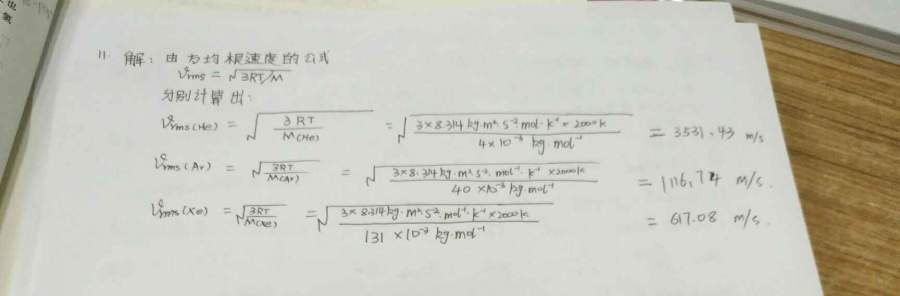 11. 解：由方均根速度的公式
Vrms = √3RT/M
分别计算出：
Vrms(He) = √(3RT / M(He)) = √(3×8.314 kg·m²·s⁻²·mol·k⁻¹×2000k / 4×10⁻³ kg·mol⁻¹) = 3531.43 m/s
Vrms(Ar) = √(3RT / M(Ar)) = √(3×8.314kg·m²·s⁻²·mol⁻¹·k⁻¹×2000k / 40×10⁻³kg·mol⁻¹) = 1116.74 m/s.
Vrms(Xe) = √(3RT / M(Xe)) = √(3×8.314kg·m²·s⁻²·mol⁻¹·k⁻¹×2000k / 131×10⁻³ kg·mol⁻¹) = 617.08 m/s.